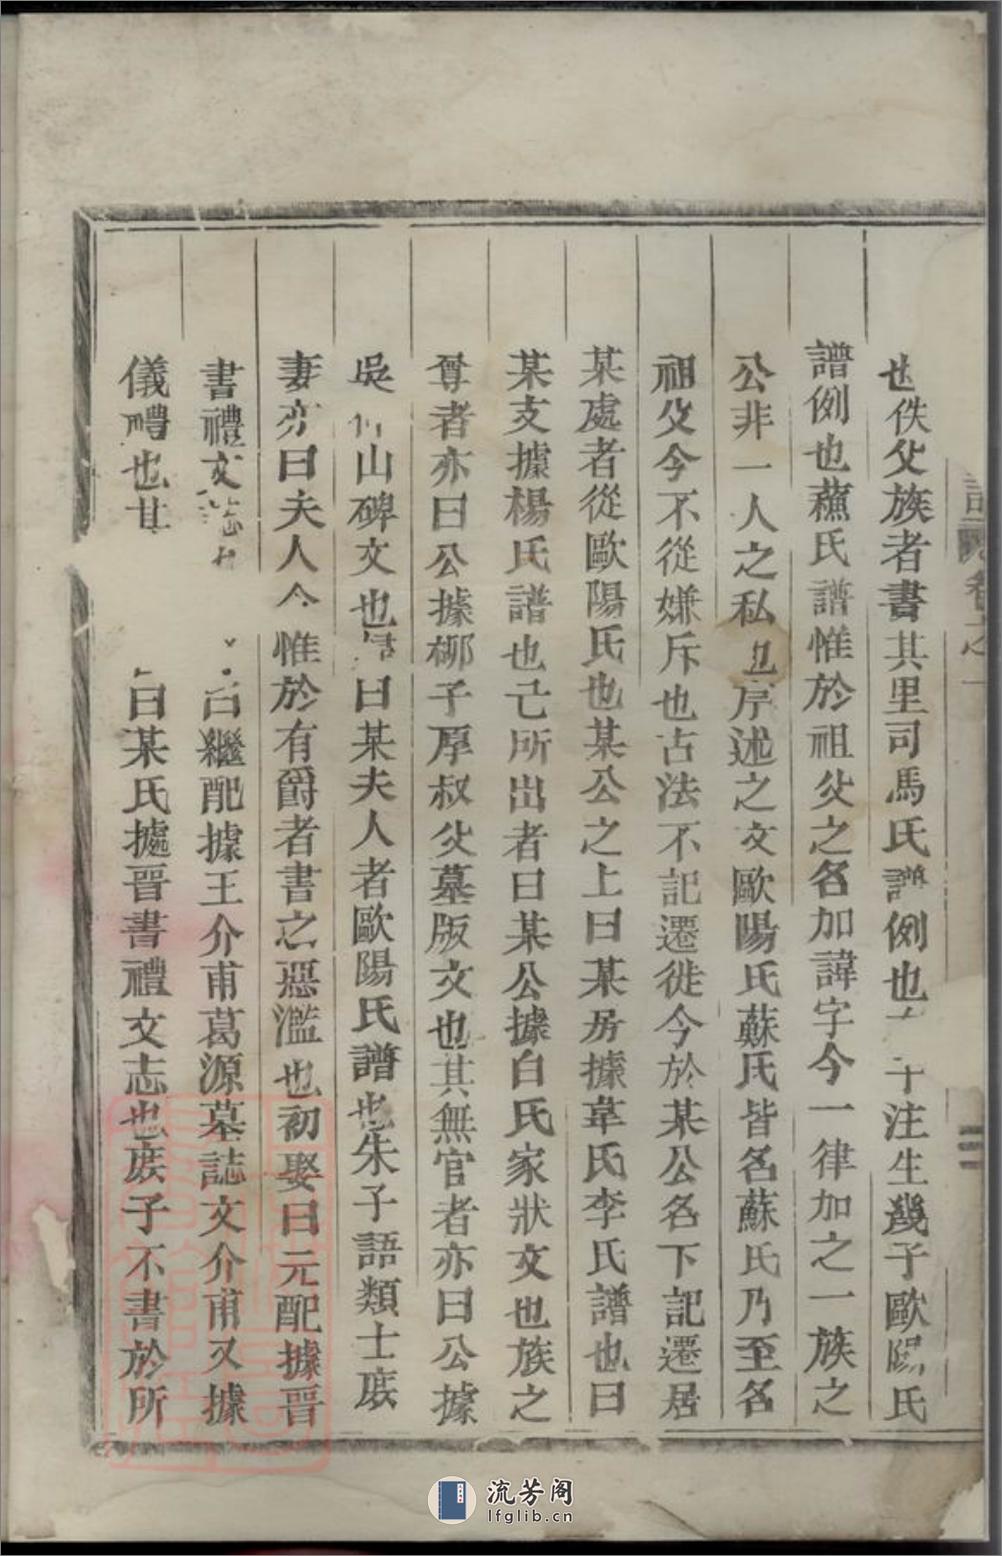 也佚父族者書其里司馬氏譜例也 子注生幾子歐陽氏
譜例也蘓氏譜惟於祖父之名加諱字今一律加之一族之
公非一人之私也序述之文歐陽氏蘇氏皆名蘇氏乃至名
祖父今不從嫌斥也古法不記遷徙今於某公名下記遷居
某處者從歐陽氏也某公之上曰某房據韋氏李氏譜也曰
某支據楊氏譜也己所出者曰某公據白氏家狀文也族之
尊者亦曰公據柳子厚叔父墓版文也其無官者亦曰公據
吳 山碑文也 曰某夫人者歐陽氏譜也朱子語類士庶
妻亦曰夫人今惟於有爵者書之惡濫也初娶曰元配據晉
書禮文志 曰繼配據王介甫葛源墓誌文介甫又據
儀禮也其 曰某氏據晉書禮文志也庶子不書於所
流芳阁
lfglib.cn